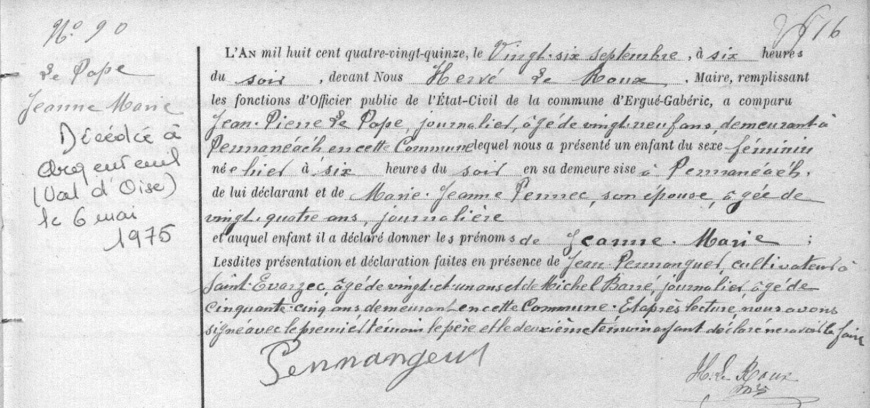 N° 90
Le Pape
Jeanne Marie
Décédée à
Argenteuil
(Val d'Oise)
le 6 mai
1975
16
L'AN mil huit cent quatre-vingt-quinze, le Vingt-six septembre, à six heures
du soir, devant Nous Hervé Le Roux, Maire, remplissant
les fonctions d'Officier public de l'État-Civil de la commune d'Ergué-Gabéric, a comparu
Jean-Pierre Le Pape, journalier, âgé de vingt-neuf ans, demeurant à
Pennanéach en cette Commune lequel nous a présenté un enfant du sexe féminin
née hier à six heures du soir en sa demeure sise à Pennanéach,
de lui déclarant et de Marie-Jeanne Pennec, son épouse, âgée de
vingt-quatre ans, journalière
et auquel enfant il a déclaré donner les prénoms de Jeanne-Marie ;
Lesdites présentation et déclaration faites en présence de Jean Pennanguer, cultivateur à
Saint-Evarzec, âgé de vingt-et-un ans et de Michel Barre, journalier âgé de
cinquante-cinq ans demeurant en cette Commune. Et après lecture nous avons
signé avec le premier témoin le père et le deuxième témoin ayant déclaré ne savoir le faire
Pennangeur
H. Le Roux